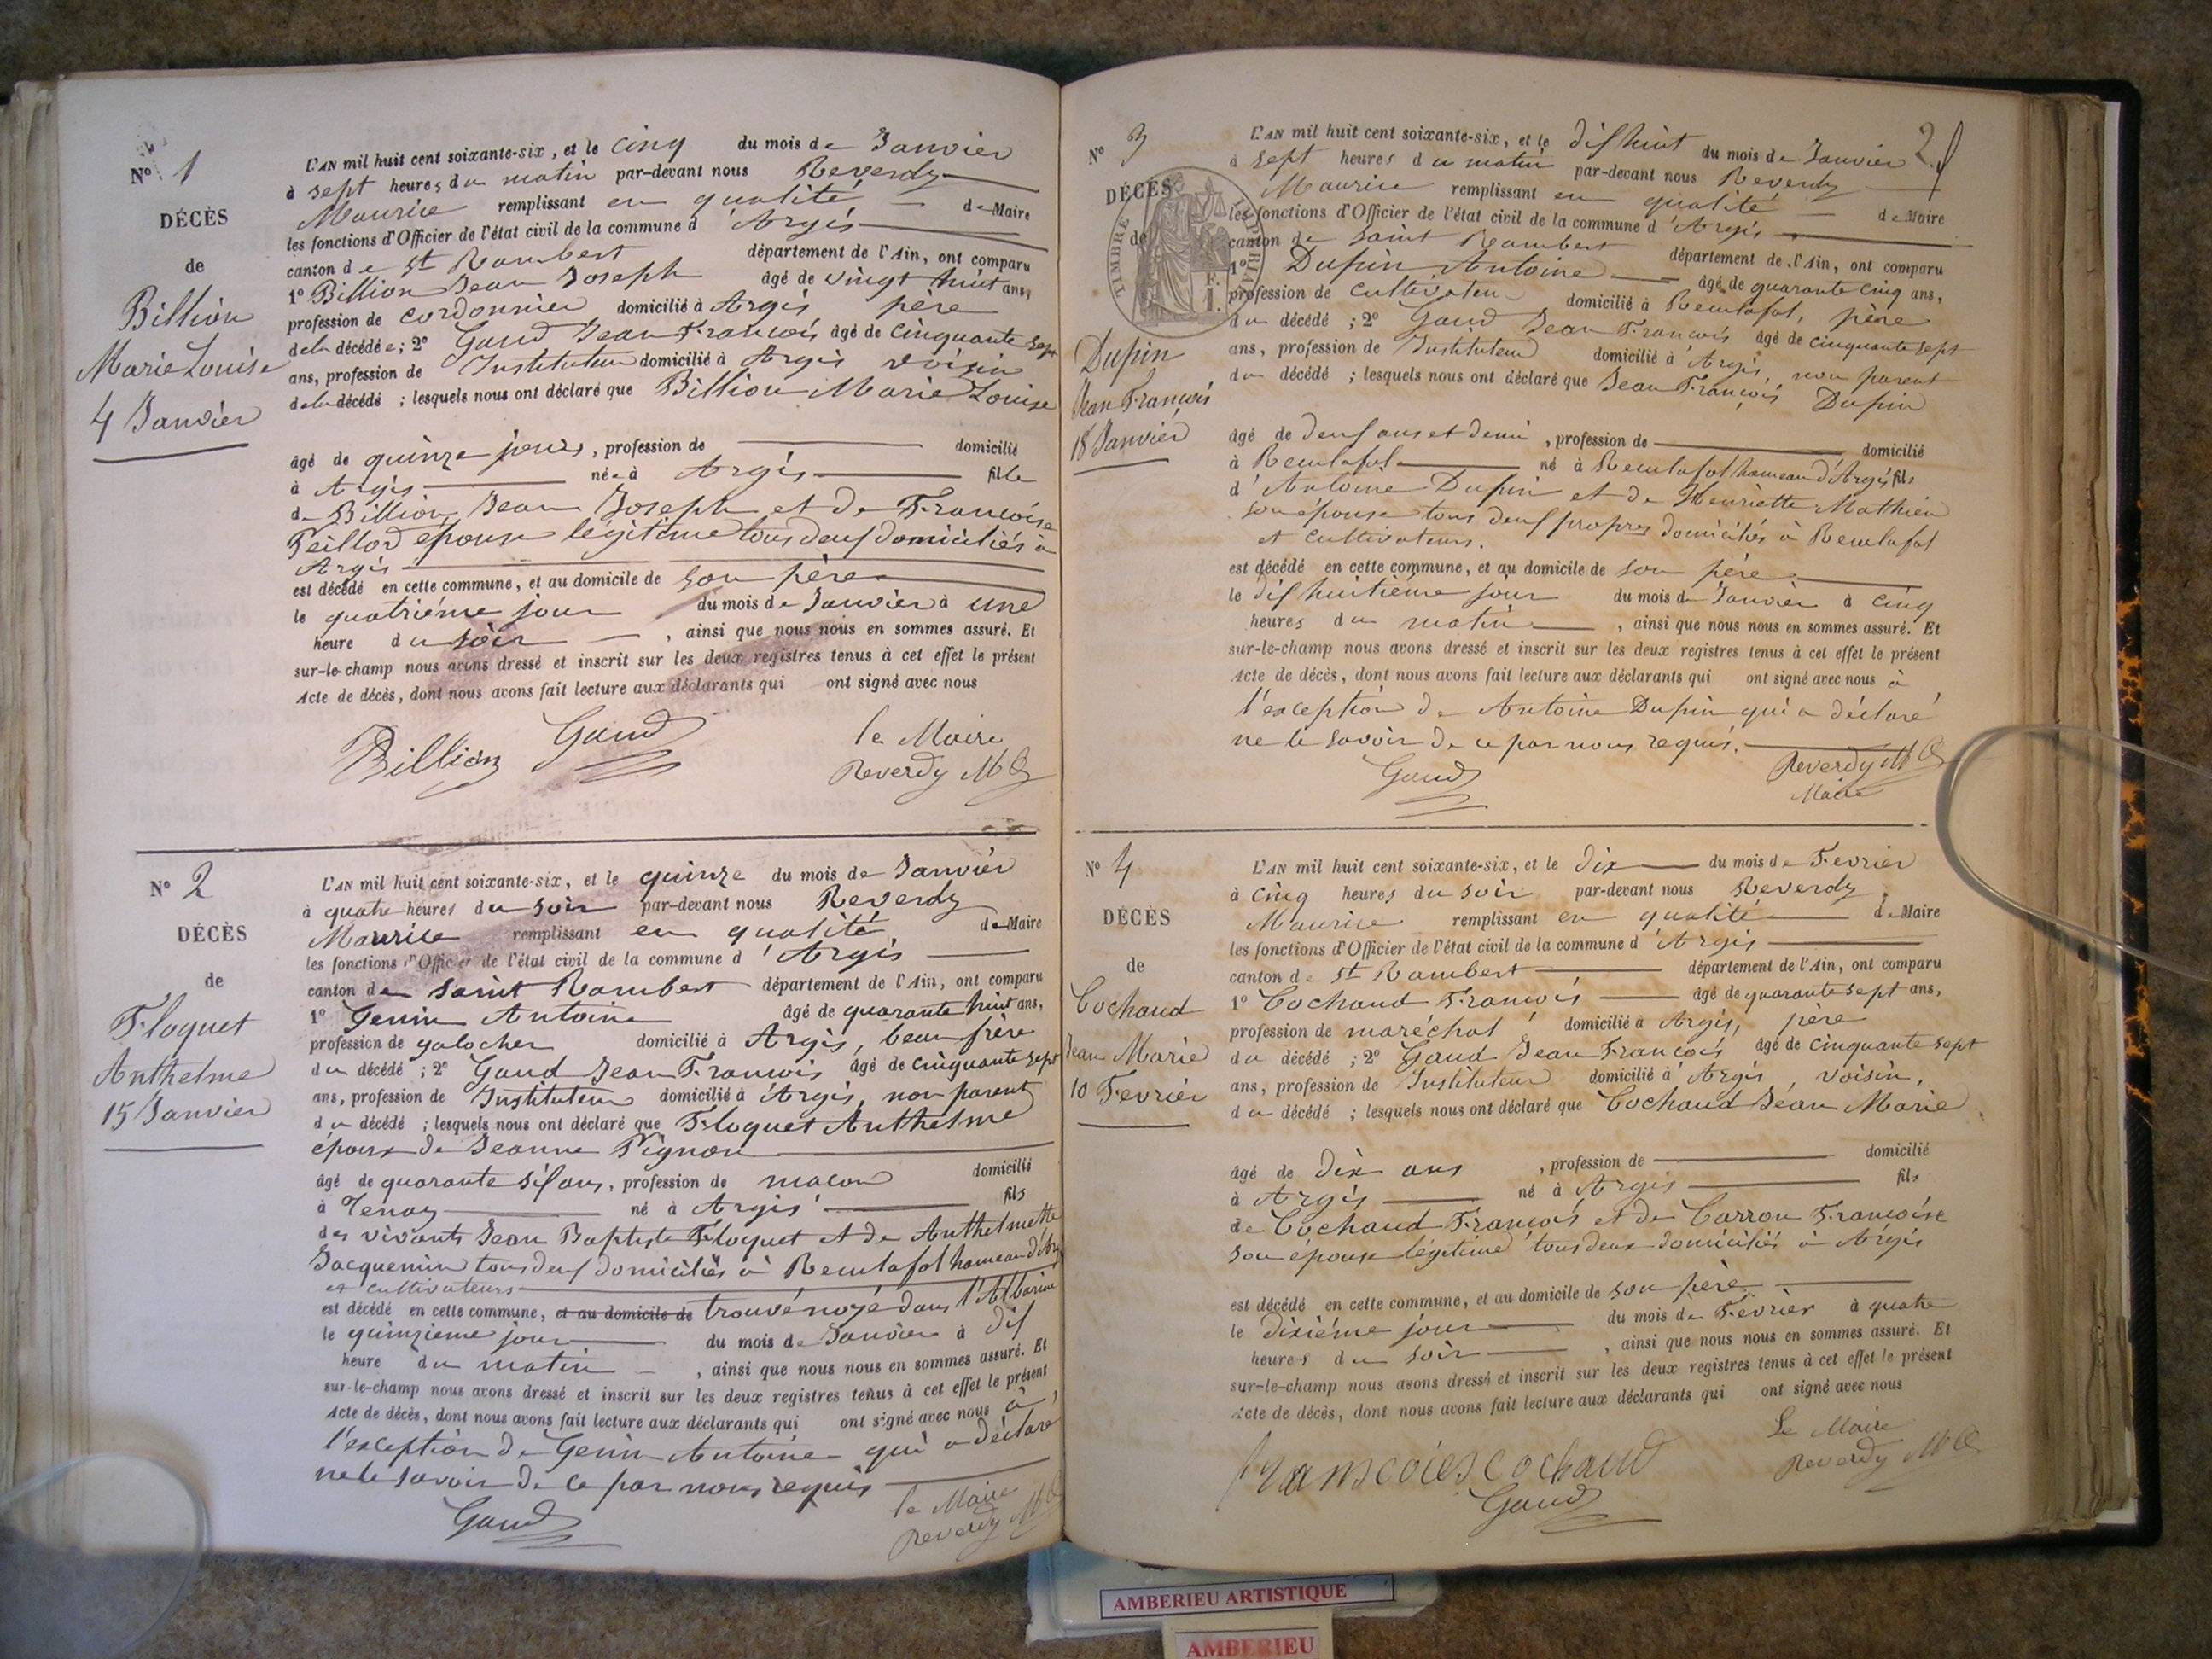 Nº 1
DÉCÈS
de
Billion
Marie Louise
4 Janvier
L'AN mil huit cent soixante-six, et le cinq du mois de Janvier
à sept heures du matin par-devant nous Reverdy
Maurice remplissant en qualité de Maire
les fonctions d'Officier de l'état civil de la commune d'Argis
canton de St Rambert département de l'Ain, ont comparu
1º Billion Jean Joseph âgé de vingt huit ans,
profession de cordonnier domicilié à Argis père
de la décédée; 2º Gaud Jean François âgé de cinquante sept
ans, profession de Instituteur domicilié à Argis voisin
de la décédé ; lesquels nous ont déclaré que Billion Marie Louise
âgé de quinze jours, profession de domicilié
à Argis née à Argis fille
de Billion Jean Joseph et de Françoise
Peillod épouse légitime tous deux domiciliés à
Argis
est décédé en cette commune, et au domicile de son père
le quatrième jour du mois de Janvier à une
heure du soir , ainsi que nous nous en sommes assuré. Et
sur-le-champ nous avons dressé et inscrit sur les deux registres tenus à cet effet le présent
Acte de décès, dont nous avons fait lecture aux déclarants qui ont signé avec nous
Billion Gaud le Maire
Reverdy
Nº 2
DÉCÈS
de
Floquet
Anthelme
15 Janvier
L'AN mil huit cent soixante-six, et le quinze du mois de Janvier
à quatre heures du soir par-devant nous Reverdy
Maurice remplissant en qualité de Maire
les fonctions d'Officier de l'état civil de la commune d'Argis
canton de saint Rambert département de l'Ain, ont comparu
1º Genin Antoine âgé de quarante huit ans,
profession de galocher domicilié à Argis, beau frère
du décédé ; 2º Gaud Jean François âgé de cinquante sept
ans, profession de Instituteur domicilié à Argis, non parent
du décédé ; lesquels nous ont déclaré que Floquet Anthelme
époux de Jeanne Pignon
âgé de quarante six ans, profession de maçon domicilié
à Tenay né à Argis fils
des vivants Jean Baptiste Floquet et de Anthelmette
Jacquemin tous deux domiciliés à Reculafol hameau d'Argis
et cultivateurs
est décédé en cette commune, et au domicile de trouvé noyé dans l'Albarine
le quinzième jour du mois de Janvier à dix
heure du matin , ainsi que nous nous en sommes assuré. Et
sur-le-champ nous avons dressé et inscrit sur les deux registres tenus à cet effet le présent
Acte de décès, dont nous avons fait lecture aux déclarants qui ont signé avec nous à
l'exception de Genin Antoine qui a déclaré
ne le savoir de ce par nous requis
Gaud le Maire
Reverdy
2
Nº 3
DÉCÈS
de
TIMBRE IMPÉRIAL
Dupin
Jean François
18 Janvier
L'AN mil huit cent soixante-six, et le dix huit du mois de Janvier
à sept heures du matin par-devant nous Reverdy
Maurice remplissant en qualité de Maire
les fonctions d'Officier de l'état civil de la commune d'Argis
canton de saint Rambert département de l'Ain, ont comparu
1º Dupin Antoine âgé de quarante cinq ans,
profession de cultivateur domicilié à Reculafol, père
du décédé ; 2º Gaud Jean François âgé de cinquante sept
ans, profession de Instituteur domicilié à Argis, non parent
du décédé ; lesquels nous ont déclaré que Jean François Dupin
âgé de deux ans et demi , profession de domicilié
à Reculafol né à Reculafol hameau d'Argis fils
d'Antoine Dupin et de Henriette Mathieu
son épouse tous deux propres domiciliés à Reculafol
et cultivateurs.
est décédé en cette commune, et au domicile de son père
le dix huitième jour du mois de Janvier à cinq
heures du matin , ainsi que nous nous en sommes assuré. Et
sur-le-champ nous avons dressé et inscrit sur les deux registres tenus à cet effet le présent
Acte de décès, dont nous avons fait lecture aux déclarants qui ont signé avec nous à
l'exception de Antoine Dupin qui a déclaré
ne le savoir de ce par nous requis.
Gaud Reverdy
Maire
Nº 4
DÉCÈS
de
Cochaud
Jean Marie
10 Fevrier
L'AN mil huit cent soixante-six, et le dix du mois de Fevrier
à cinq heures du soir par-devant nous Reverdy
Maurice remplissant en qualité de Maire
les fonctions d'Officier de l'état civil de la commune d'Argis
canton de St Rambert département de l'Ain, ont comparu
1º Cochaud François âgé de quarante sept ans,
profession de maréchal, domicilié à Argis, père
du décédé ; 2º Gaud Jean François âgé de cinquante sept
ans, profession de Instituteur domicilié à Argis, voisin,
du décédé ; lesquels nous ont déclaré que Cochaud Jean Marie
âgé de dix ans , profession de domicilié
à Argis né à Argis fils
de Cochaud François et de Carron Françoise
son épouse légitime tous deux domiciliés à Argis
est décédé en cette commune, et au domicile de son père
le dixième jour du mois de Fevrier à quatre
heures du soir , ainsi que nous nous en sommes assuré. Et
sur-le-champ nous avons dressé et inscrit sur les deux registres tenus à cet effet le présent
Acte de décès, dont nous avons fait lecture aux déclarants qui ont signé avec nous
Le Maire
Reverdy
franscoies cochaud
Gaud
AMBERIEU ARTISTIQUE
AMBERIEU